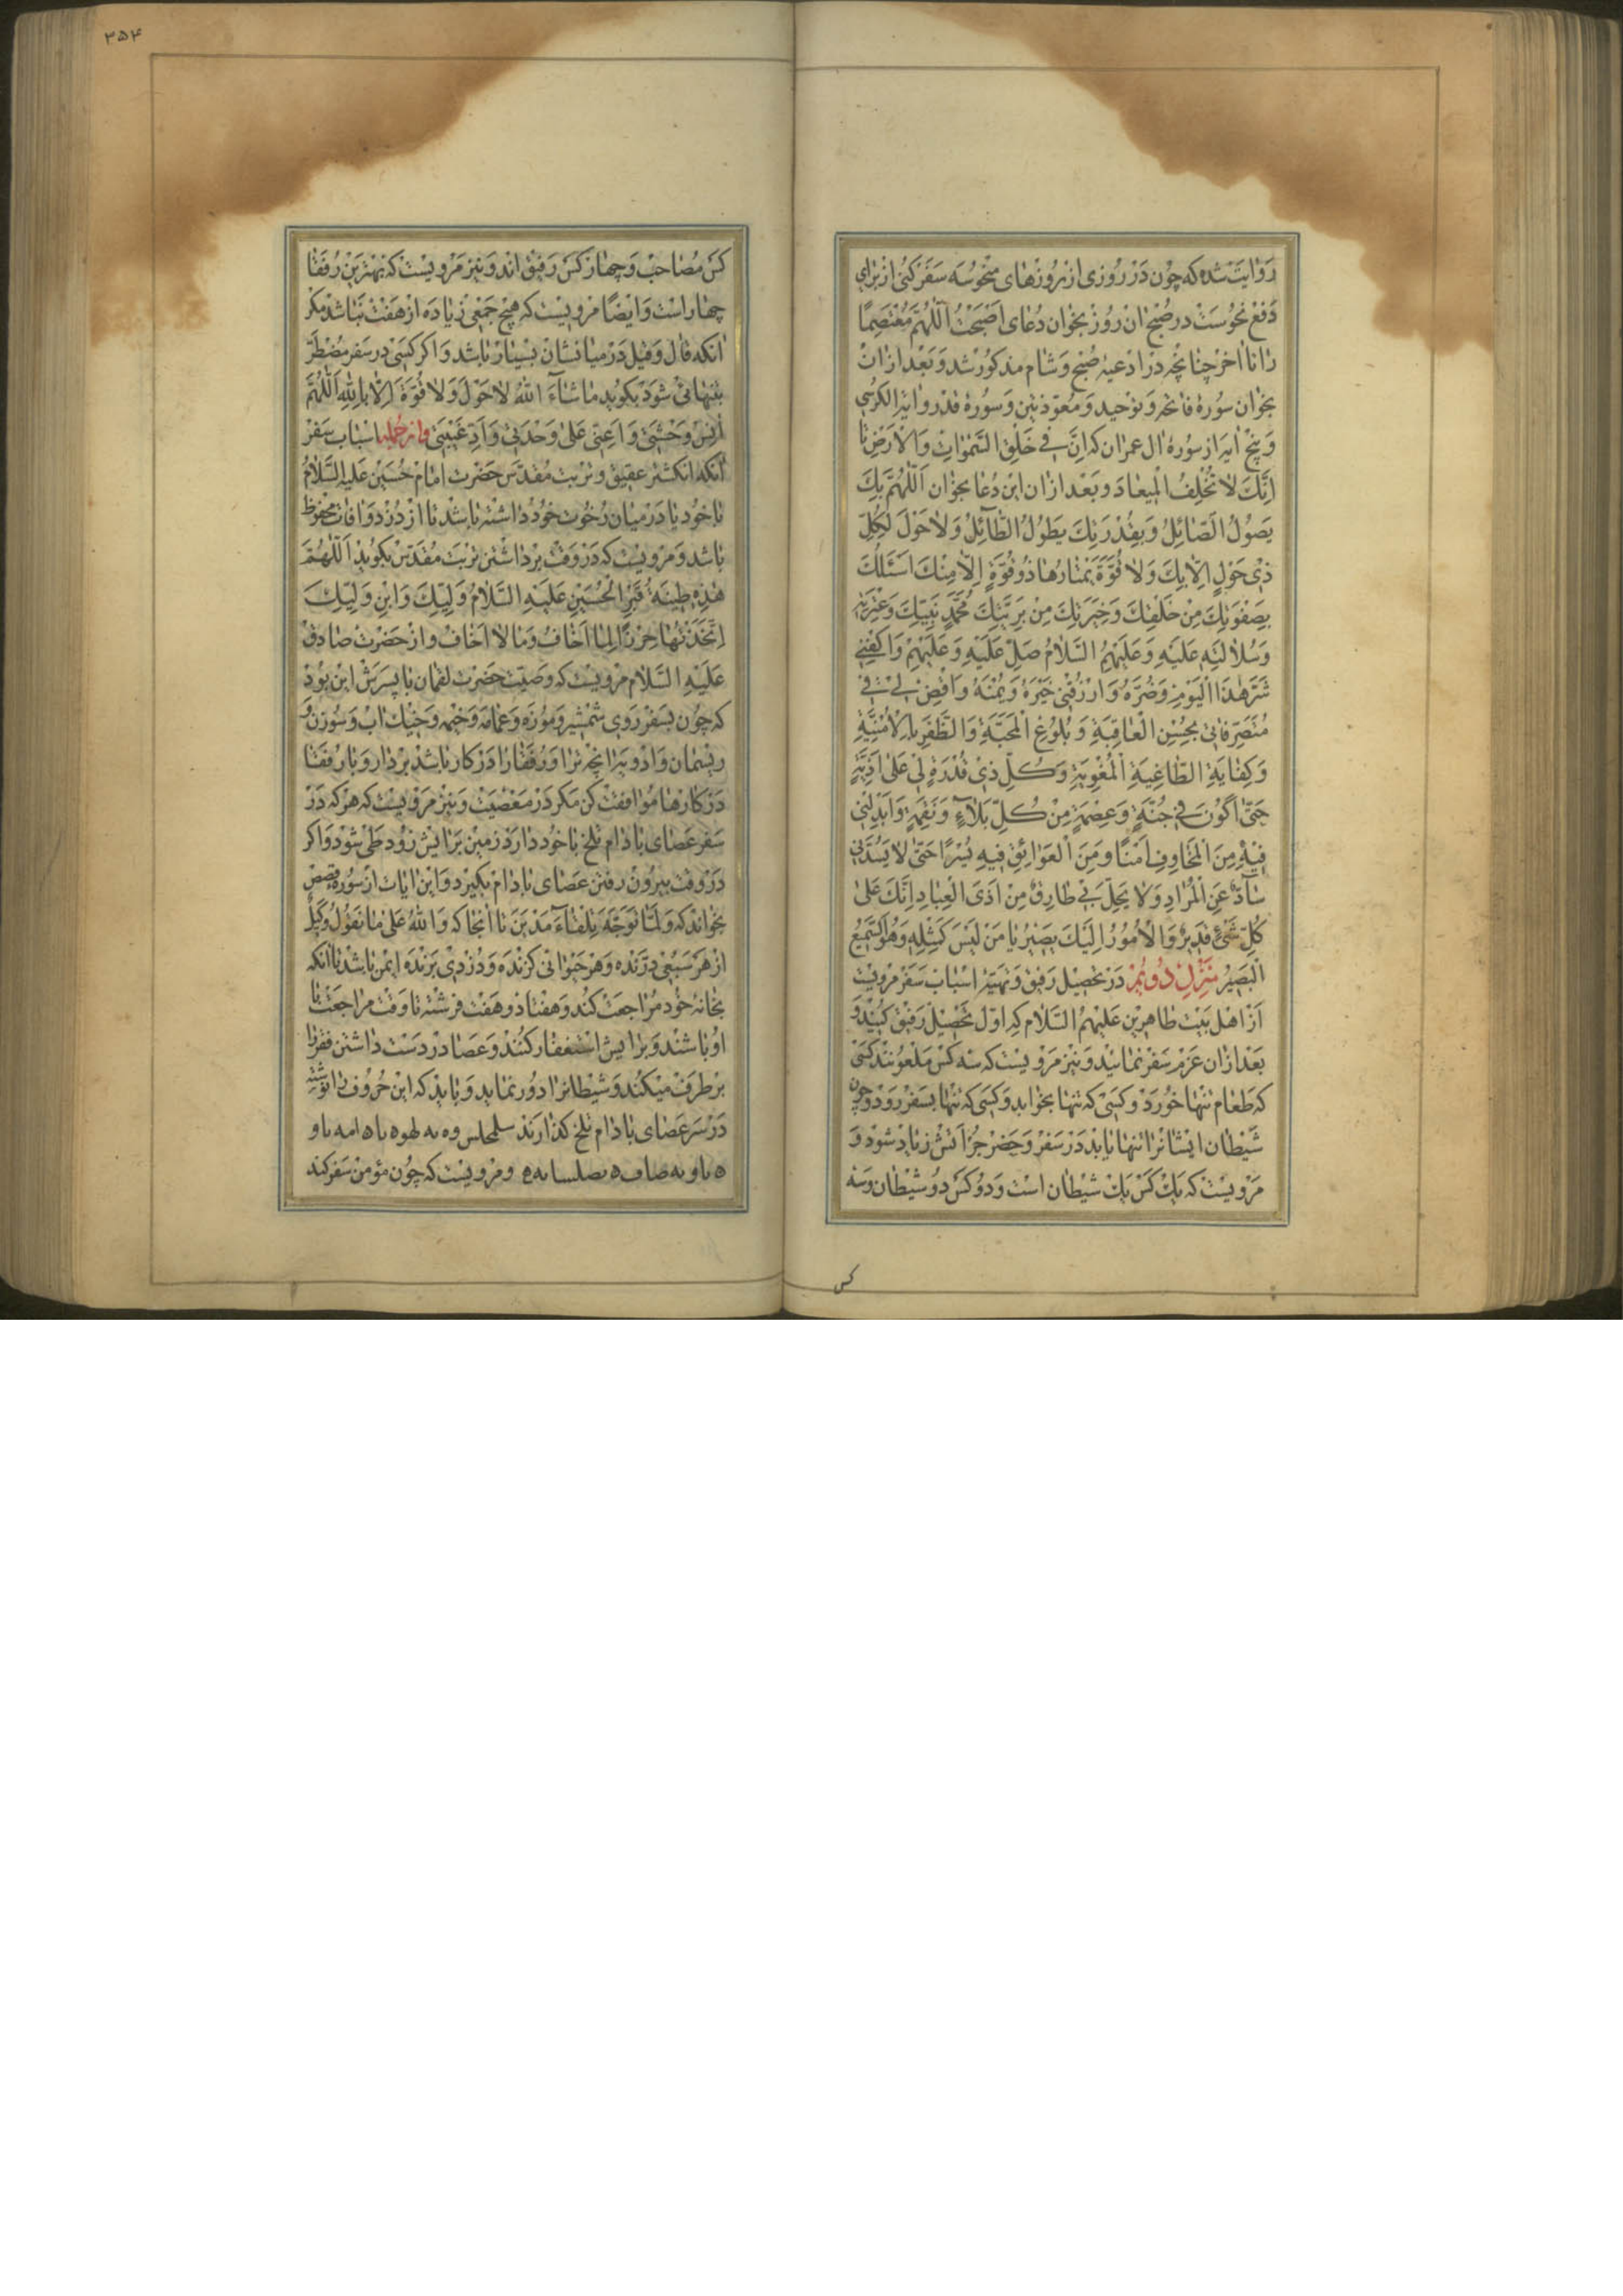 روایت شده که چون در روزی از روزهای منحوسه سفر کنی از برای
دفع نحوست در صبح آن روز بخوان دعای اصبحت اللهم معتصما
را تا آخر چنانچه در ادعیه صبح و شام مذکور شد و بعد از آن
بخوان سوره فاتحه و توحید و معوّذتین و سوره قدر و آیة الکرسی
و پنج آیه از سوره آل عمران که اِنَّ فی خَلْقِ السَّمٰواتِ وَالْاَرْضِ تا
اِنَّكَ لا تُخْلِفُ الْمیعادَ و بعد از آن این دعا بخوان اَللّهُمَّ بِكَ
یَصُولُ الصّائِلُ وَبِقُدْرَتِكَ یَطُولُ الطّآئِلُ وَلا حَوْلَ لِكُلِّ
ذی حَوْلٍ اِلّا بِكَ وَلا قُوَّةَ یَمْتارُها ذُو قُوَّةٍ اِلّا مِنْكَ اَسْئَلُكَ
بِصَفْوَتِكَ مِنْ خَلْقِكَ وَخِیَرَتِكَ مِنْ بَرِیَّتِكَ مُحَمَّدٍ نَبِیِّكَ وَعِتْرَتِهِ
وَسُلالَتِهِ عَلَیْهِ وَعَلَیْهِمُ السَّلامُ صَلِّ عَلَیْهِ وَعَلَیْهِمْ وَاكْفِنی
شَرَّ هٰذَا الْیَوْمِ وَضُرَّهُ وَارْزُقْنی خَیْرَهُ وَیُمْنَهُ وَاقْضِ لی فی
مُتَصَرَّفاتی بِحُسْنِ الْعاقِبَةِ وَبُلُوغِ الْمَحَبَّةِ وَالظَّفَرِ بِالْاُمْنِیَّةِ
وَكِفایَةِ الطّاغِیَةِ الْمُغْوِیَةِ وَكُلِّ ذی قُدْرَةٍ لی عَلی اَذِیَّةٍ
حَتّی اَكُونَ فی جُنَّةٍ وَعِصْمَةٍ مِنْ كُلِّ بَلآءٍ وَنَقِمَةٍ وَاَبْدِلْنی
فیهِ مِنَ الْمَخاوِفِ اَمْنًا وَمِنَ الْعَوائِقِ فیهِ یُسْرًا حَتّی لا یَصُدَّنی
صآدٌّ عَنِ الْمُرادِ وَلا یَحِلَّ بی طارِقٌ مِنْ اَذَی الْعِبادِ اِنَّكَ عَلی
كُلِّ شَیْءٍ قَدیرٌ وَالْاُمُورُ اِلَیْكَ یَصیرُ یا مَنْ لَیْسَ كَمِثْلِهِ وَهُوَ السَّمیعُ
الْبَصیرُ منزل دویّم در تحصیل رفیق و تهیّه اسباب سفر مرویست
از اهل بیت طاهرین علیهم السلام که اول تحصیل رفیق کنید و
بعد از آن عزم سفر نمائید و نیز مرویست که سه کس ملعونند کسی
که طعام تنها خورد و کسی که تنها بخوابد و کسی که تنها بسفر رود و چون
شیطان ایشانرا تنها یابد در سفر و حضر جرأتش زیاد شود و
مرویست که یك کس یك شیطان است و دو کس دو شیطان و سه
کس
۳۵۴
کس مصاحب و چهار کس رفیق اند و نیز مرویست که بهترین رفقا
چهار است و ایضا مرویست که هیچ جمعی زیاده از هفت نباشد مکر
آنکه قال و قیل در میانشان بسیار باشد و اکر کسی در سفر مضطر
بتنهائی شود بکوید ما شآءَ اللهُ لا حَوْلَ وَلا قُوَّةَ اِلّا بِاللهِ اَللّهُمَّ
انِسْ وَحْشَتی وَاَعِنّی عَلی وَحْدَتی وَاَدِّ غَیْبَتی و از جمله اسباب سفر
آنکه انکشتر عقیق و تربت مقدس حضرت امام حسین علیه السلام
با خود یا در میان رخوت خود داشته باشد تا از دزد و آفات محفوظ
باشد و مرویست که در وقت برداشتن تربت مقدس بکوید اَللّهُمَّ
هٰذِهِ طینَةُ قَبْرِ الْحُسَیْنِ عَلَیْهِ السَّلامُ وَلِیِّكَ وَابْنِ وَلِیِّكَ
اِتَّخَذْتُها حِرْزًا لِما اَخافُ وَما لا اَخافُ و از حضرت صادق
علیه السلام مرویست که وصیت حضرت لقمان با پسرش این بود
که چون بسفر روی شمشیر و موزه و عمامه و خیمه و خیك آب و سوزن و
ریسمان و ادویه آنچه ترا و رفقا را در کار باشد بردار و با رفقا
در کارها موافقت کن مکر در معصیت و نیز مرویست که هرکه در
سفر عصای بادام تلخ با خود دارد زمین برایش زود طی شود و اکر
در وقت بیرون رفتن عصای بادام بکیرد و این آیات از سوره قصص
بخواند که وَلَمّا تَوَجَّهَ تِلْقآءَ مَدْیَنَ تا آنجا که وَاللهُ عَلی ما نَقُولُ وَكیلٌ
از هر سبعی درنده و هر حیوانی کزنده و دزدی برنده ایمن باشد تا آنکه
بخانه خود مراجعت کند و هفتاد و هفت فرشته تا وقت مراجعت با
او باشند و برایش استغفار کنند و عصا در دست داشتن فقر را
بر طرف میکند و شیطانرا دور نماید و باید که این حروف را نوشته
در سر عصای بادام تلخ کذارند
و مرویست که چون مؤمن سفر کند